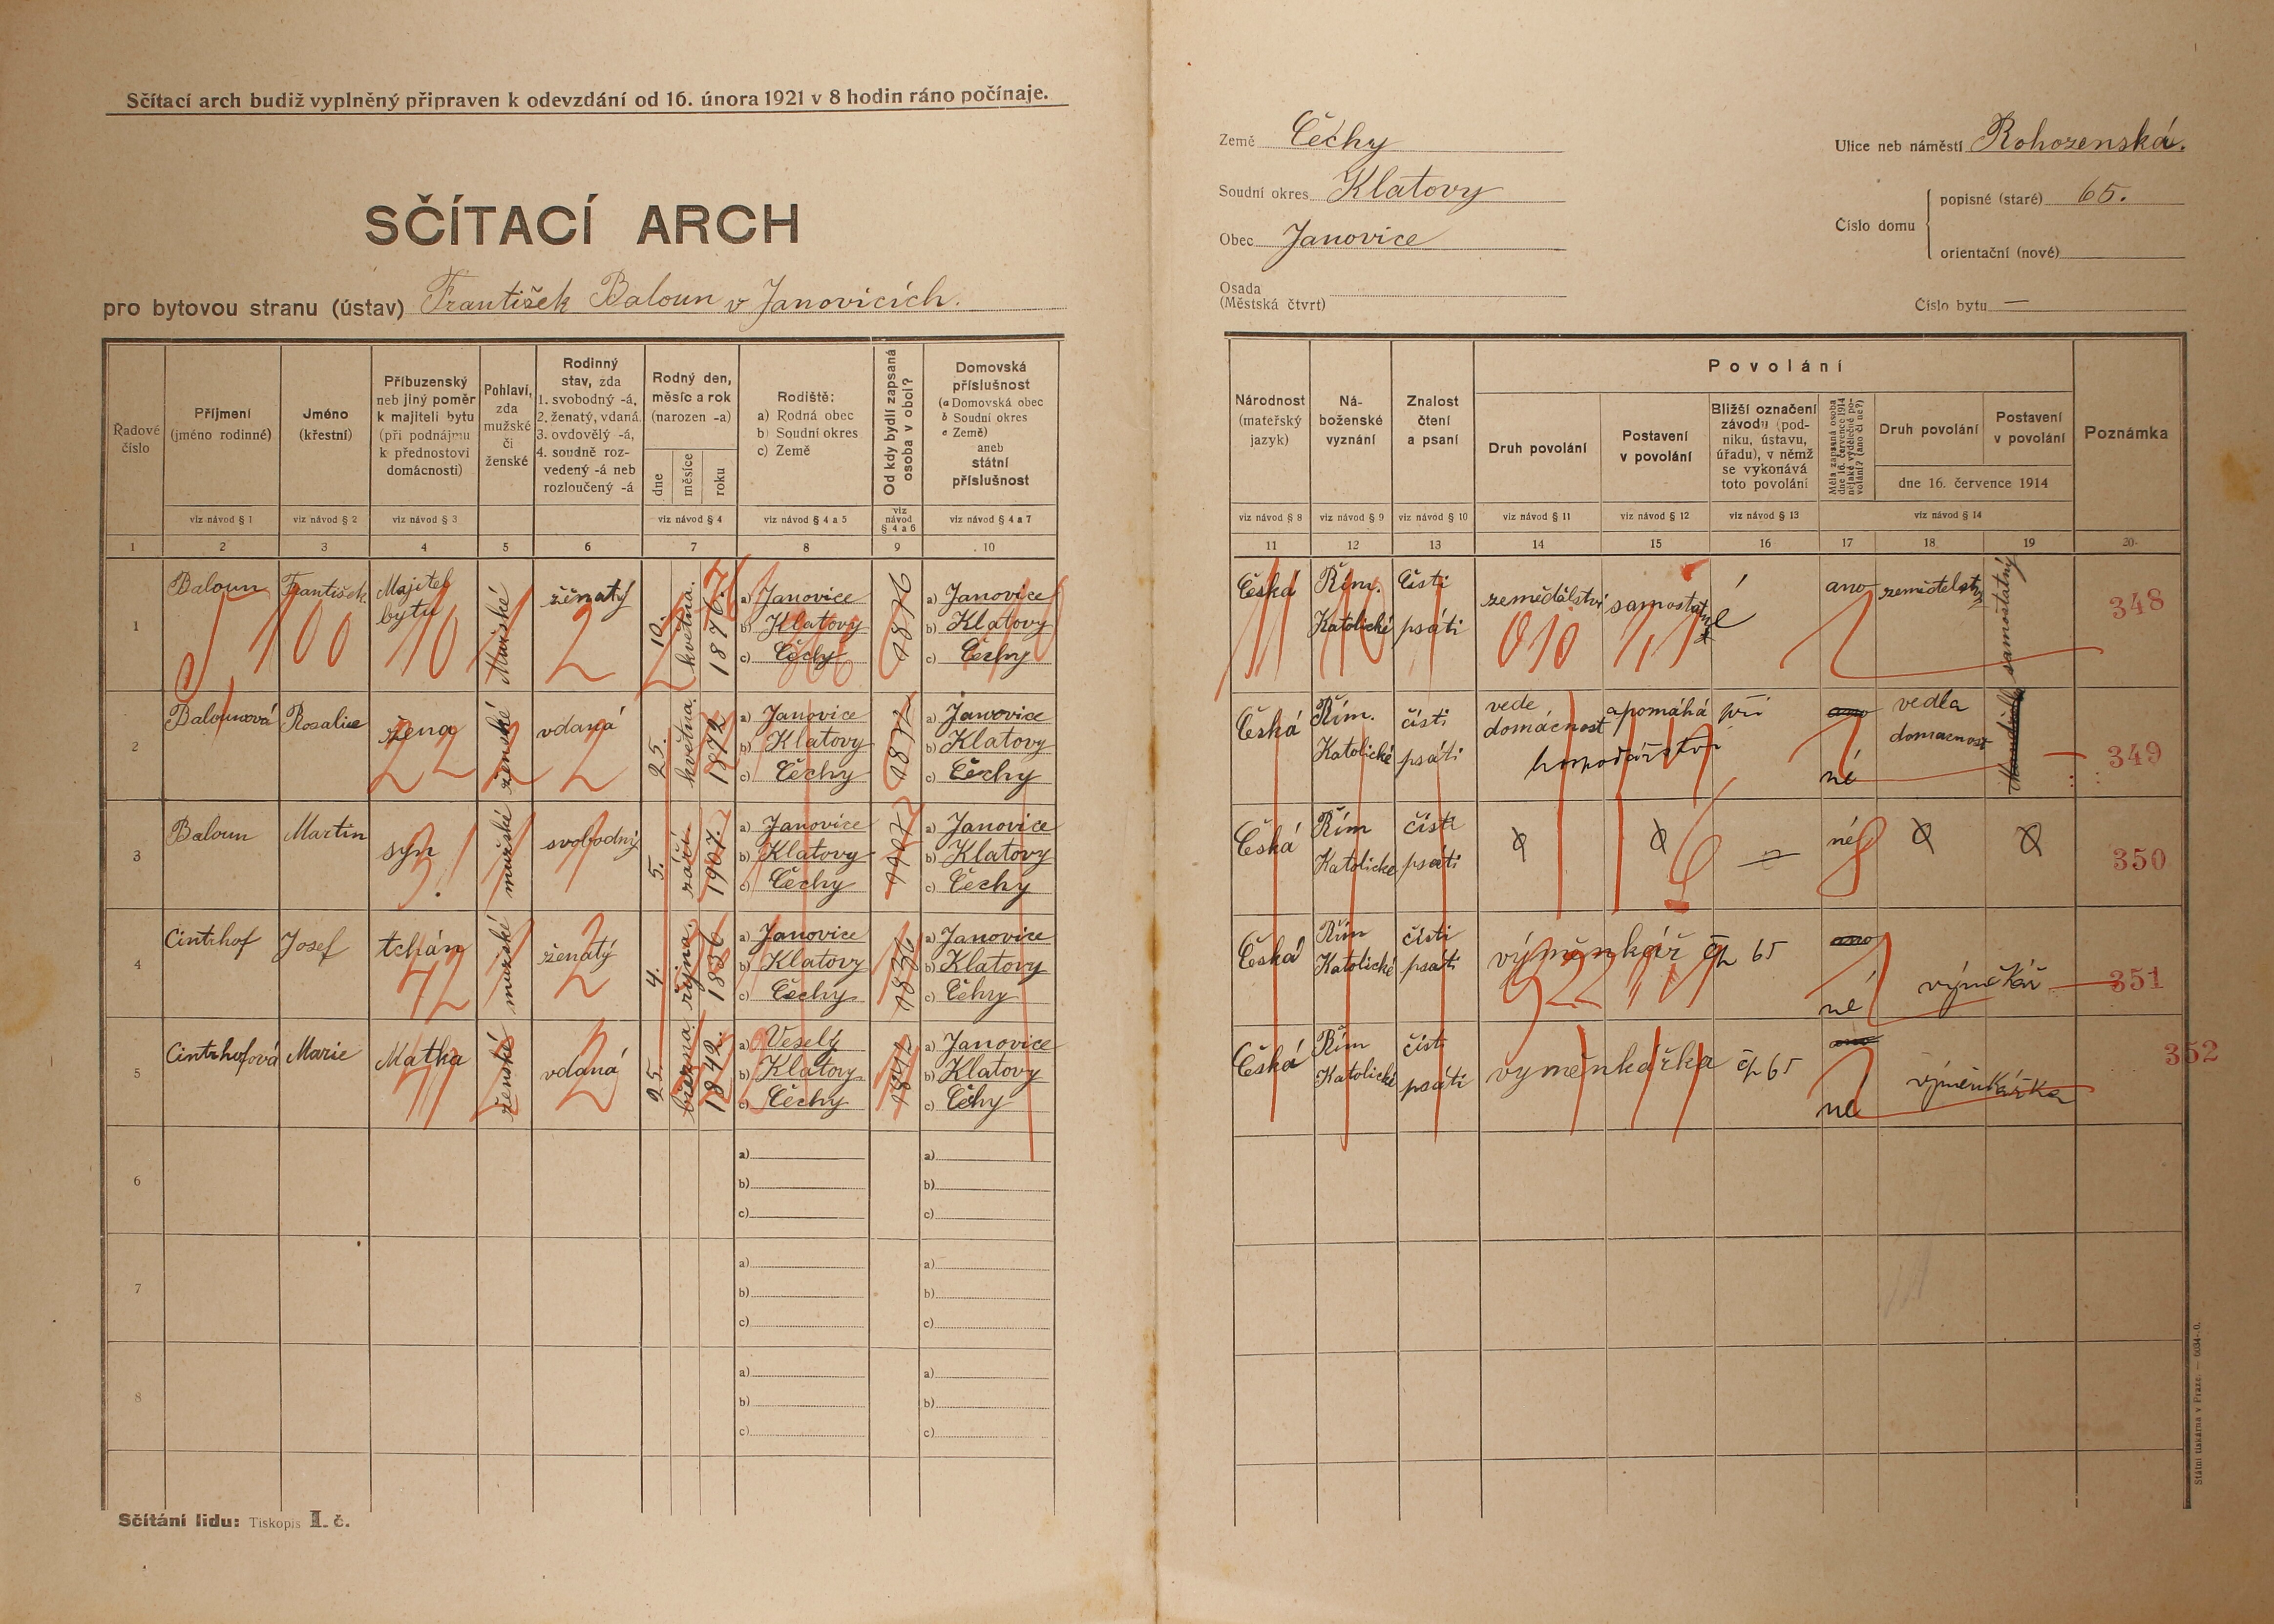 Sčítací arch budiž vyplněný připraven k odevzdání od 16. února 1921 v 8 hodin ráno počínaje.
SČÍTACÍ ARCH
pro bytovou stranu (ústav) František Baloun v Janovicích.
Země Čechy
Soudní okres Klatovy
Obec Janovice
Osada
(Městská čtvrt)
Ulice neb náměstí Rohozenská.
Číslo domu
popisné (staré) 65.
orientační (nové)
Číslo bytu —
Řadové číslo
Příjmení
(jméno rodinné)
Jméno
(křestní)
Příbuzenský
neb jiný poměr
k majiteli bytu
(při podnájmu
k přednostovi
domácnosti)
Pohlaví,
zda
mužské
či
ženské
Rodinný
stav, zda
1. svobodný -á,
2. ženatý, vdaná
3. ovdovělý -á,
4. soudně roz-
vedený -á neb
rozloučený -á
Rodný den,
měsíc a rok
(narozen -a)
dne
měsíce
roku
Rodiště:
a) Rodná obec
b) Soudní okres
c) Země
Od kdy bydlí zapsaná
osoba v obci?
Domovská
příslušnost
(a Domovská obec
b Soudní okres
c Země)
aneb
státní
příslušnost
viz návod § 1
viz návod § 2
viz návod § 3
viz návod § 4
viz návod § 4 a 5
viz
návod
§ 4 a 6
viz návod § 4 a 7
1 2 3 4 5 6 7 8 9 10
Národnost
(mateřský
jazyk)
Ná-
boženské
vyznání
Znalost
čtení
a psaní
Povolání
Druh povolání
Postavení
v povolání
Bližší označení
závodu (pod-
niku, ústavu,
úřadu), v němž
se vykonává
toto povolání
Měla zapsaná osoba
dne 16. července 1914
nějaké výdělečné po-
volání? (ano či ne?)
Druh povolání
Postavení
v povolání
dne 16. července 1914
Poznámka
viz návod § 8
viz návod § 9
viz návod § 10
viz návod § 11
viz návod § 12
viz návod § 13
viz návod § 14
11 12 13 14 15 16 17 18 19 20
1
Baloun
František
Majitel
bytu
Mužské
ženatý
10.
května.
1876.
a) Janovice
b) Klatovy
c) Čechy
1876
a) Janovice
b) Klatovy
c) Čechy
Česká
Řím.
Katolické
čísti
psáti
zemědělství
samostatné
ano
zemědělství
samostatný
348
2
Balounová
Rosalie
žena
ženské
vdaná
25.
května.
1872
a) Janovice
b) Klatovy
c) Čechy
1872
a) Janovice
b) Klatovy
c) Čechy
Česká
Řím.
Katolické
čísti
psáti
vede
domácnost
a pomáhá při
hospodářství
ano
né
vedla
domacnost
349
3
Baloun
Martin
syn
mužské
svobodný
5.
září
1907.
a) Janovice
b) Klatovy
c) Čechy
1907
a) Janovice
b) Klatovy
c) Čechy
Česká
Řím
Katolické
čísti
psáti
né
350
4
Cintrhof
Josef
tchán
mužské
ženatý
4.
října.
1836
a) Janovice
b) Klatovy
c) Čechy
1836
a) Janovice
b) Klatovy
c) Čehry
Česká
Řím
Katolické
čísti
psáti
výměnkář čp 65
ano
né
výměkář
351
5
Cintrhofová
Marie
Matka
ženské
vdaná
25.
března.
1842.
a) Veselý
b) Klatovy
c) Čechy
a) Janovice
b) Klatovy
c) Čehy
Česká
Řím
Katolické
čísti
psáti
vyměnkářka čp 65
ano
ne
výměnkářka
352
6
a)
b)
c)
a)
b)
c)
7
a)
b)
c)
a)
b)
c)
8
a)
b)
c)
a)
b)
c)
Sčítání lidu: Tiskopis I. č.
Státní tiskárna v Praze. — 6034-0.